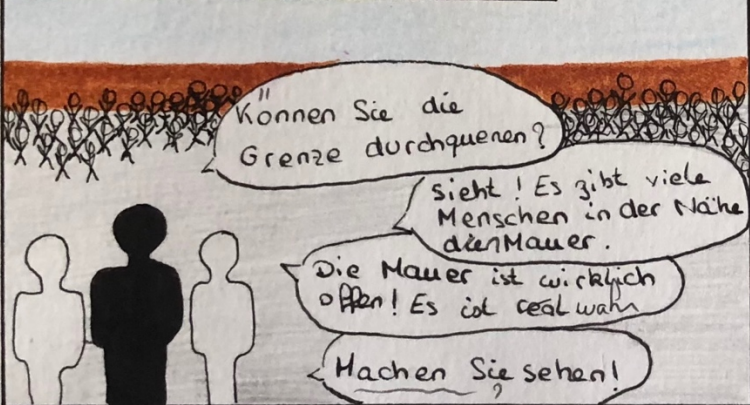 Können Sie die
Grenze durchquenen?
Sieht! Es gibt viele
Menschen in der Nähe
dien Mauer.
Die Mauer ist wirklich
offen! Es ist real wahr
Machen Sie sehen!
?